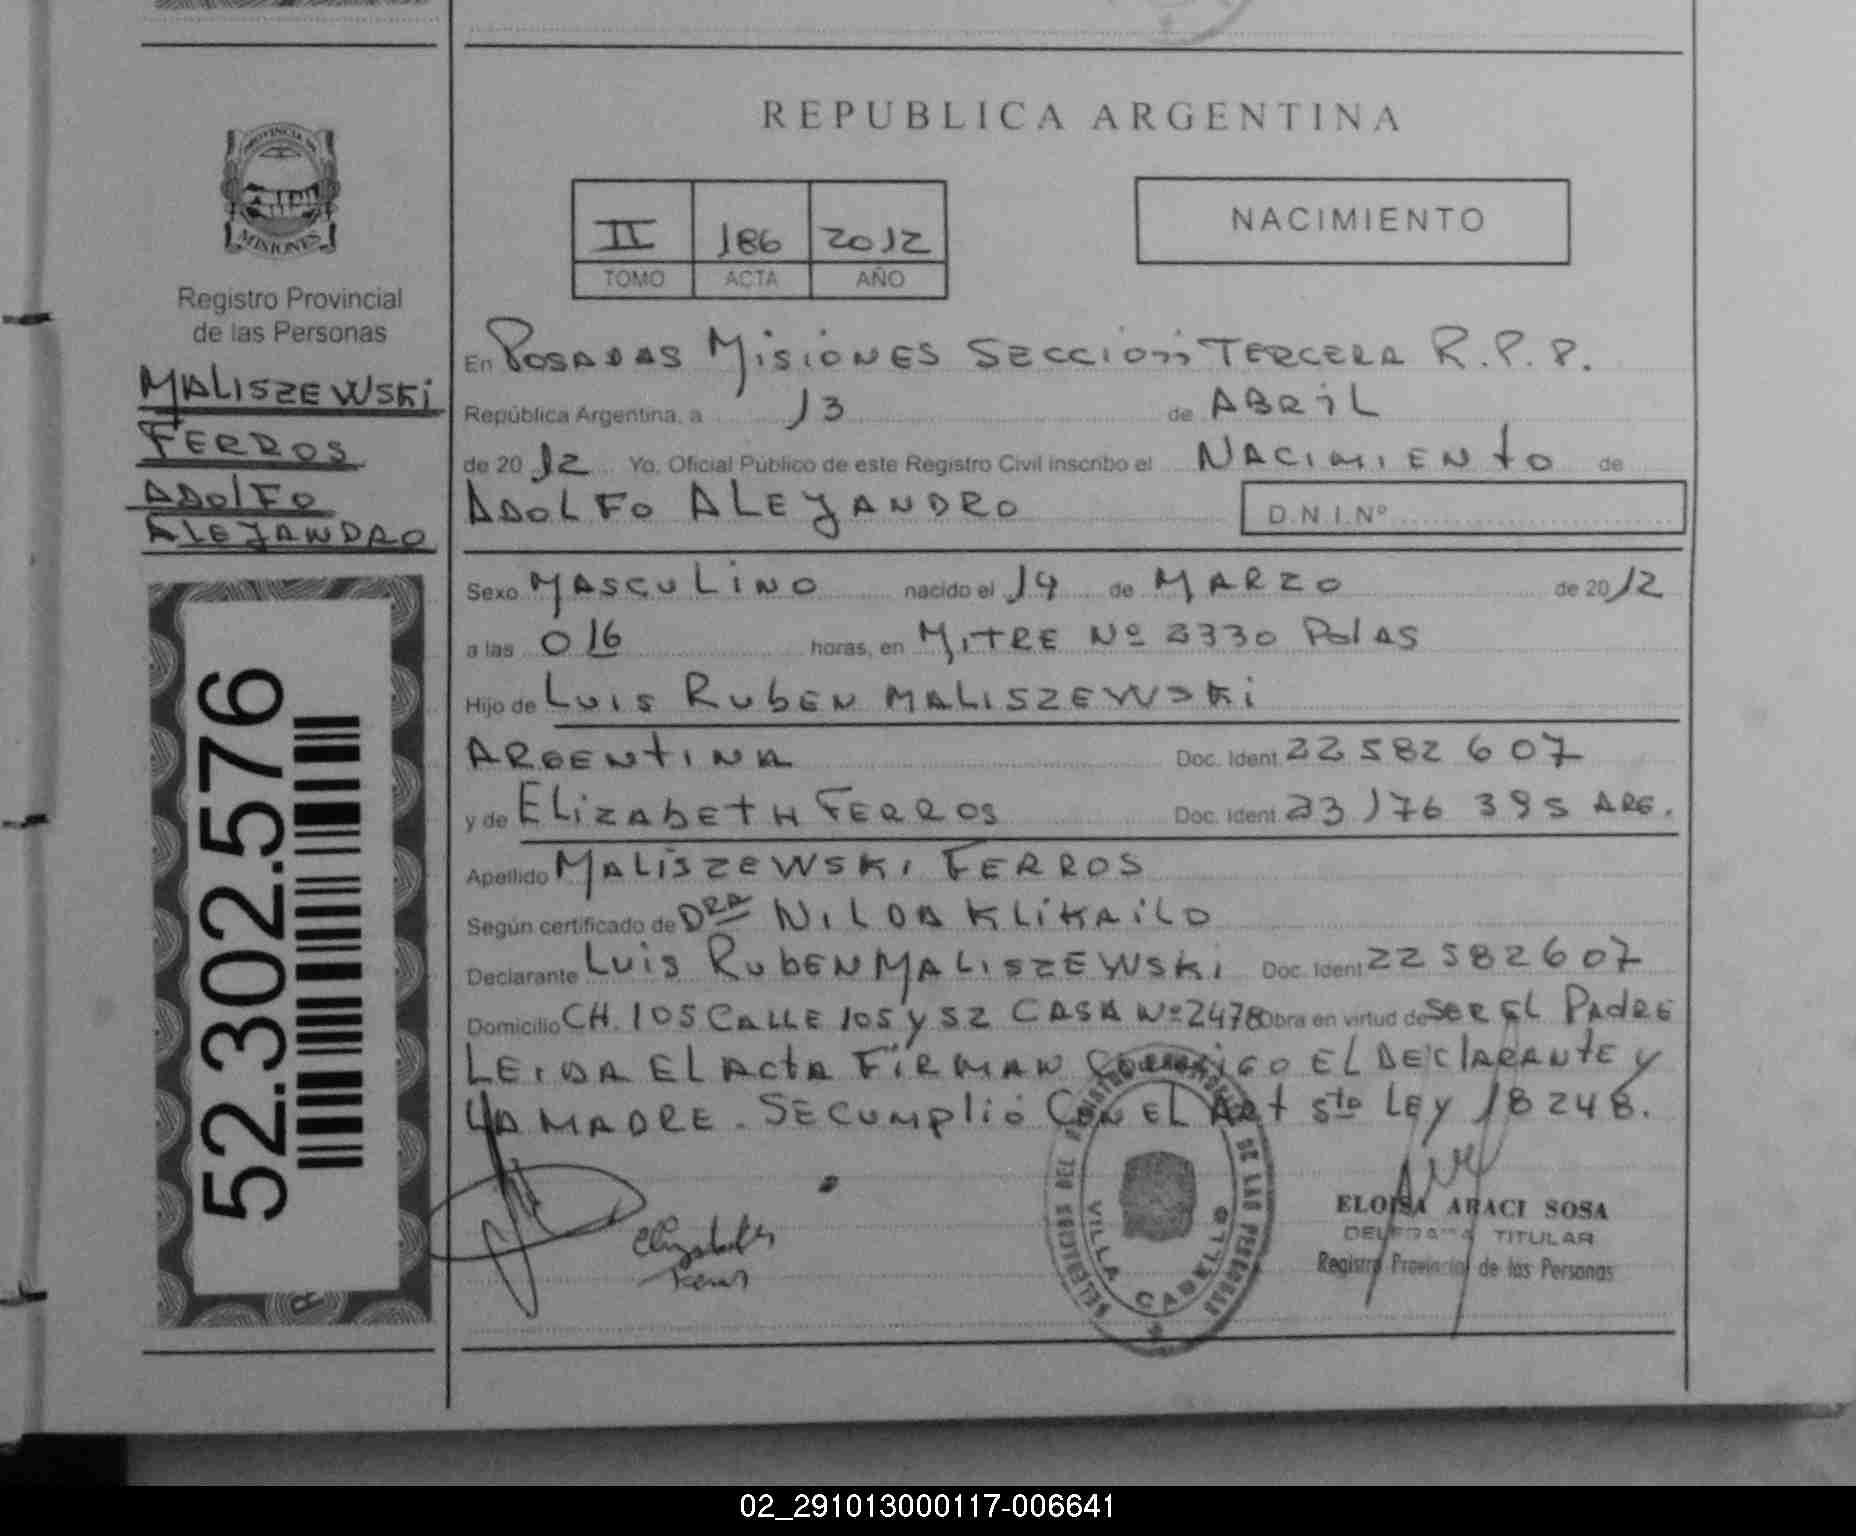 REPUBLICA ARGENTINA
PROVINCIA DE
MISIONES
Registro Provincial
de las Personas
MALISZEWSKI
FERROS
ADOLFO
ALEJANDRO
52.302.576
II 186 2012
TOMO ACTA AÑO
NACIMIENTO
En POSADAS MISIONES SECCION TERCERA R.P.P.
República Argentina, a 13 de ABRIL
de 2012 Yo, Oficial Público de este Registro Civil inscribo el NACIMIENTO de
ADOLFO ALEJANDRO D.N.I.Nº
Sexo MASCULINO nacido el 14 de MARZO de 2012
a las 016 horas, en MITRE Nº 2330 PDAS
Hijo de LUIS RUBEN MALISZEWSKI
ARGENTINA Doc. Ident. 22 582 607
y de ELIZABETH FERROS Doc. Ident. 23 176 395 ARG.
Apellido MALISZEWSKI FERROS
Según certificado de DRA NILDA KLIKAILO
Declarante LUIS RUBEN MALISZEWSKI Doc. Ident 22582607
Domicilio CH. 105 CALLE 105 y 52 CASA Nº 2478 Obra en virtud de SER EL PADRE
LEIDA EL ACTA FIRMAN CONMIGO EL DECLARANTE y
LA MADRE. SE CUMPLIÓ CON EL ART 5to LEY 18248.
Elizabeth
Ferros
VILLA CABELLO
ELOISA ARACI SOSA
DELEGADA TITULAR
Registro Provincial de las Personas
02_291013000117-006641